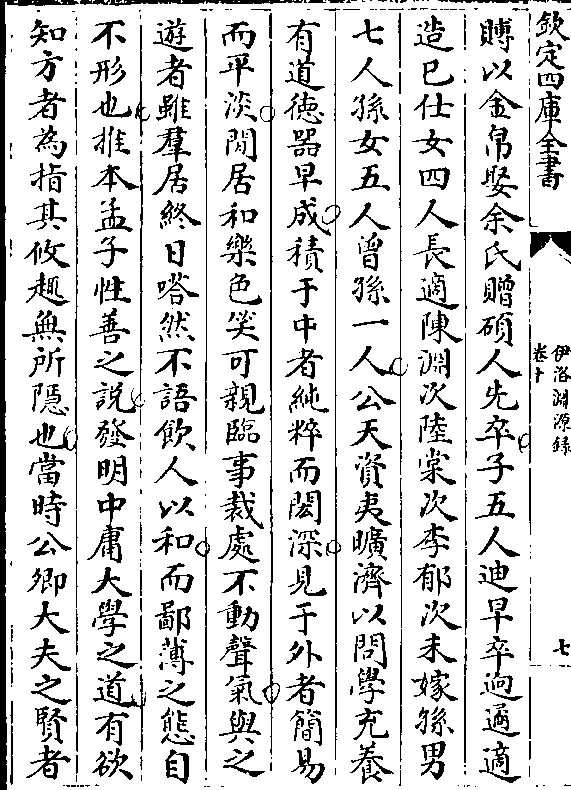 欽定四庫全書
伊洛淵源錄
卷十
七
賻以金帛娶余氏贈碩人先卒子五人迪早卒逈遹適
造已仕女四人長適陳淵次陸棠次李郁次未嫁孫男
七人孫女五人曾孫一人公天資夷曠濟以問學充養
有道德器早成積于中者純粹而閎深見于外者簡易
而平淡閒居和樂色笑可親臨事裁處不動聲氣與之
遊者雖羣居終日嗒然不語飲人以和而鄙薄之態自
不形也推本孟子性善之說發明中庸大學之道有欲
知方者為指其攸趣無所隱也當時公卿大夫之賢者